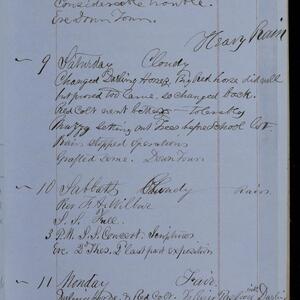 Considerable trouble.
Eve Down Town.
Heavy Rain
~ 9 Saturday Cloudy
Changed Darling Horse, Red horse did well
but proved too lame, so changed back.
Red Colt went better — tolerably
setting out Trees before School Lot.
Rain stopped operations
Grafted some. Down Town.
~ 10 Sabbath Cloudy Rain
Rev Wilbur
S. S. Full
3 P.M. S.S. Concert. Scriptures
Eve 2^d Thes. 2^d last part exposition
~ 11 Monday Fair.
Red Colt